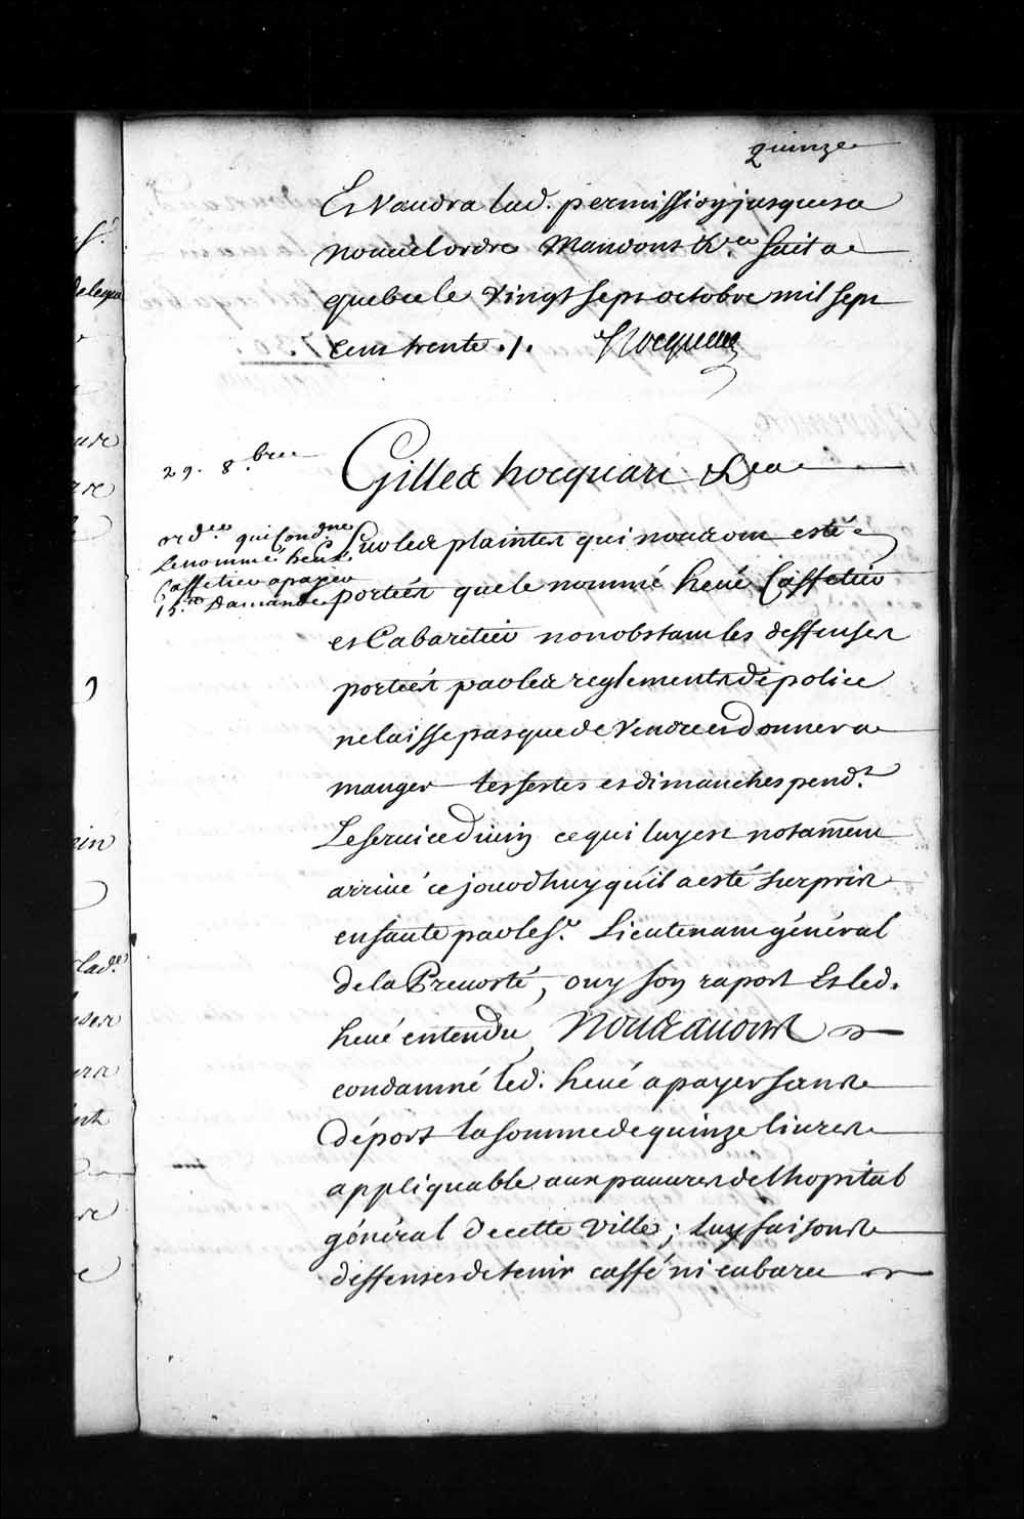 quinze
Et Vaudra lad. permission jusques a
nouvel ordre Mandons &.ca fait a
quebec le vingt sept octobre mil sept
cent trente ./. Hocquart
29. 8.bre
Gilles hocquart &ca
ord.ce qui cond.ne
le nommé hevé
Caffetier a payer
15.# Damande
Sur les plaintes qui nous ont esté
portées que le nommé hevé Caffetier
et Cabaretier nonobstant les deffenses
portées par les reglements de police
ne laisse pas que de Vendre et donner a
manger les festes et dimanches pend.t
Le service divin ce qui luy est notament
arrivé ce jourdhuy quil a esté surpris
en faute par le S.r Lieutenant général
de la Prevosté, ouy son raport Et led.
hevé entendu Nous avons
condamné led. hevé a payer sans
déport la somme de quinze livres
appliquable aux pauvres de lhopital
général de cette ville; luy faisons
deffenses de tenir caffé ni cabaret